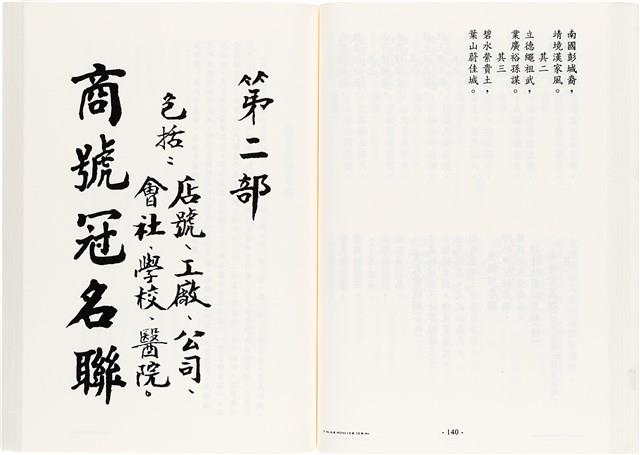 南國彭城裔，
靖境漢家風。
其二
立德繩祖武，
業廣裕孫謀。
其三
碧水縈貴土，
葉山蔚佳城。
- 140 -
第二部
包括：店號、工廠、公司、
會社、學校、醫院。
商號冠名聯